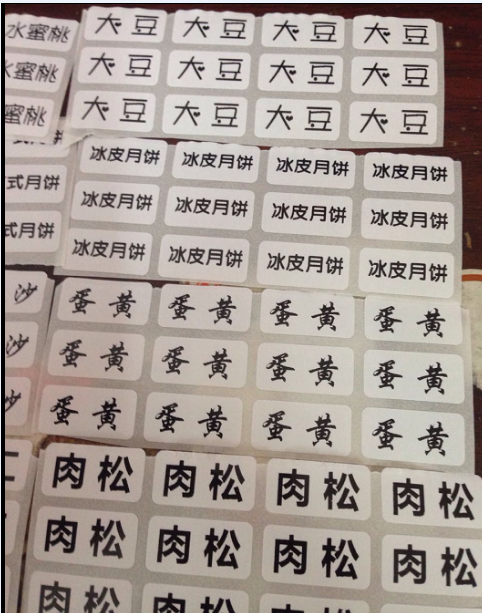 水蜜桃 大豆 大豆 大豆 大豆
水蜜桃 大豆 大豆 大豆 大豆
蜜桃 大豆 大豆 大豆 大豆
冰皮月饼 冰皮月饼 冰皮月饼 冰皮月饼
式月饼 冰皮月饼 冰皮月饼 冰皮月饼 冰皮月饼
式月饼 冰皮月饼 冰皮月饼 冰皮月饼 冰皮月饼
沙 蛋黄 蛋黄 蛋黄 蛋黄
沙 蛋黄 蛋黄 蛋黄 蛋黄
沙 蛋黄 蛋黄 蛋黄 蛋黄
肉松 肉松 肉松 肉松
肉松 肉松 肉松 肉松
肉松 肉松 肉松